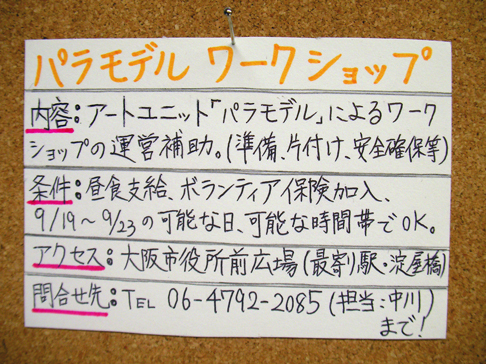 パラモデル ワークショップ
内容：アートユニット「パラモデル」によるワーク
ショップの運営補助。(準備、片付け、安全確保等)
条件：昼食支給、ボランティア保険加入、
9/19～9/23の可能な日、可能な時間帯でOK。
アクセス：大阪市役所前広場(最寄)駅・淀屋橋)
問合せ先：TEL 06-4792-2085 (担当：中川)
まで！